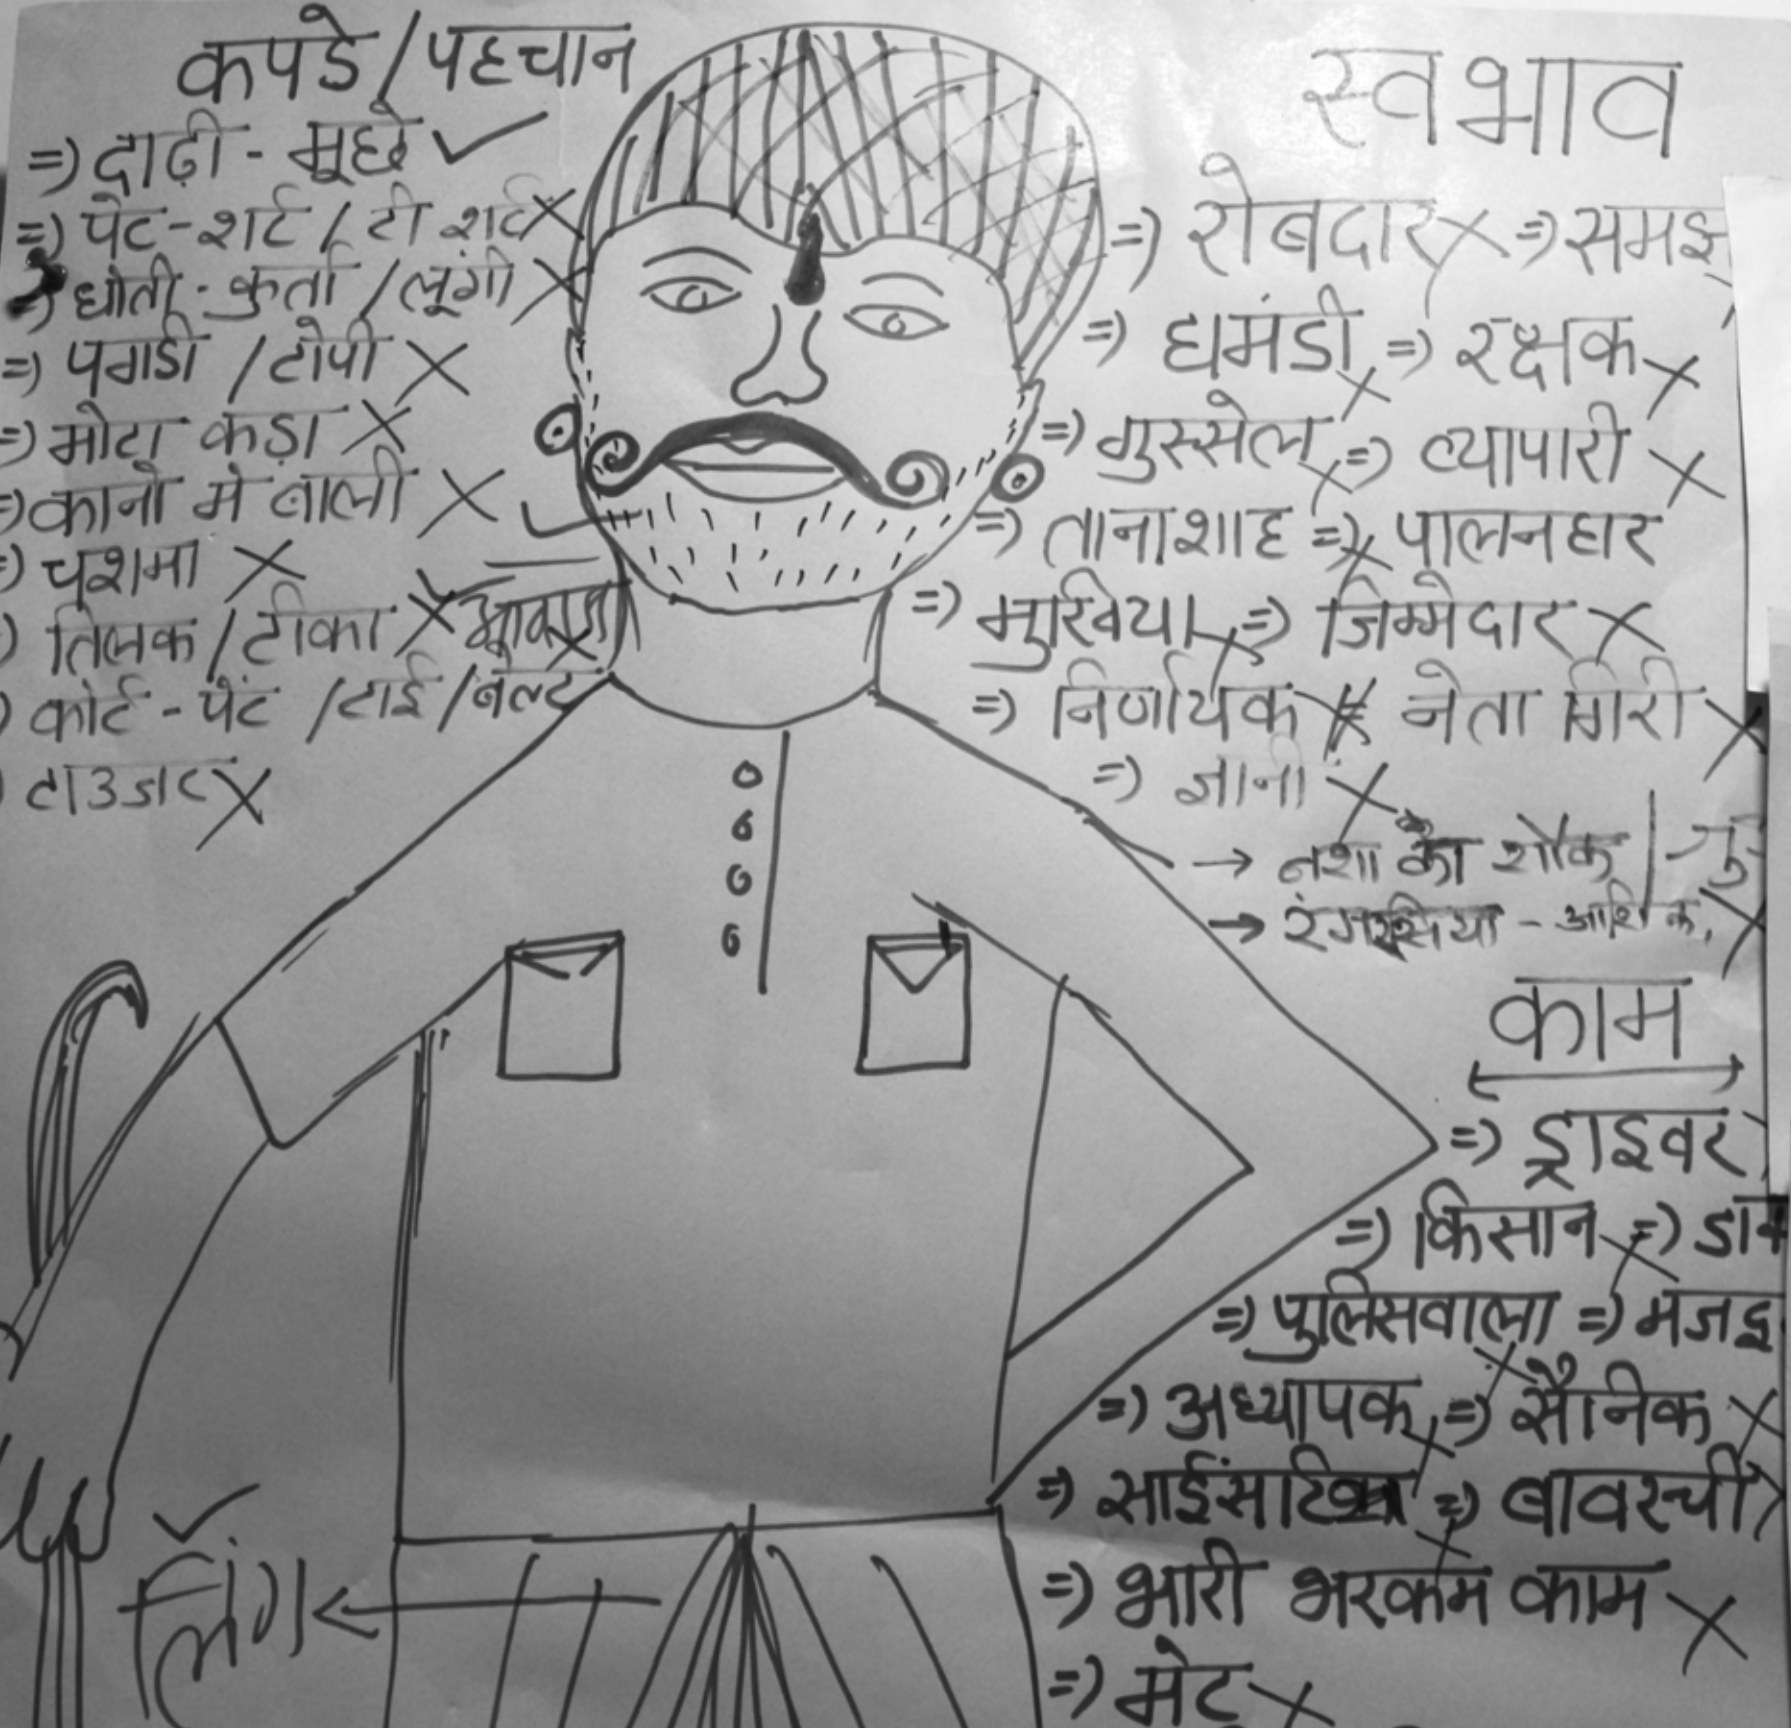 कपडे / पहचान
=) दाढ़ी - मूछे ✓
=) पेंट - शर्ट / टी शर्ट ✗
=) धोती - कुर्ता / लूंगी ✗
=) पगडी / टोपी ✗
=) मोटा कड़ा ✗
=) कानो मे बाली ✗
=) चशमा ✗
=) तिलक / टीका ✗
=) कोर्ट - पेंट / टाई / बेल्ट
टाउजार ✗
✓
लिंग
स्वभाव
=) रोबदार ✗ =)
=) घमंडी ✗ =) रक्षक ✗
=) गुस्सेल ✗ =) व्यापारी ✗
=) तानाशाह ✗ =) पालनहार
=) मुखिया ✗ =) जिम्मेदार ✗
=) निर्णायक ✗ नेता गिरी ✗
=) ज्ञानी ✗
→ नशा का शौक /
→ रंगरसिया - आशिक ✗
काम
=) ड्राइवर
=) किसान ✗ =)
=) पुलिसवाला ✗ =)
=) अध्यापक ✗ =) सैनिक ✗
=) =) बावरची ✗
=) भारी भरकम काम ✗
=) मेट ✗